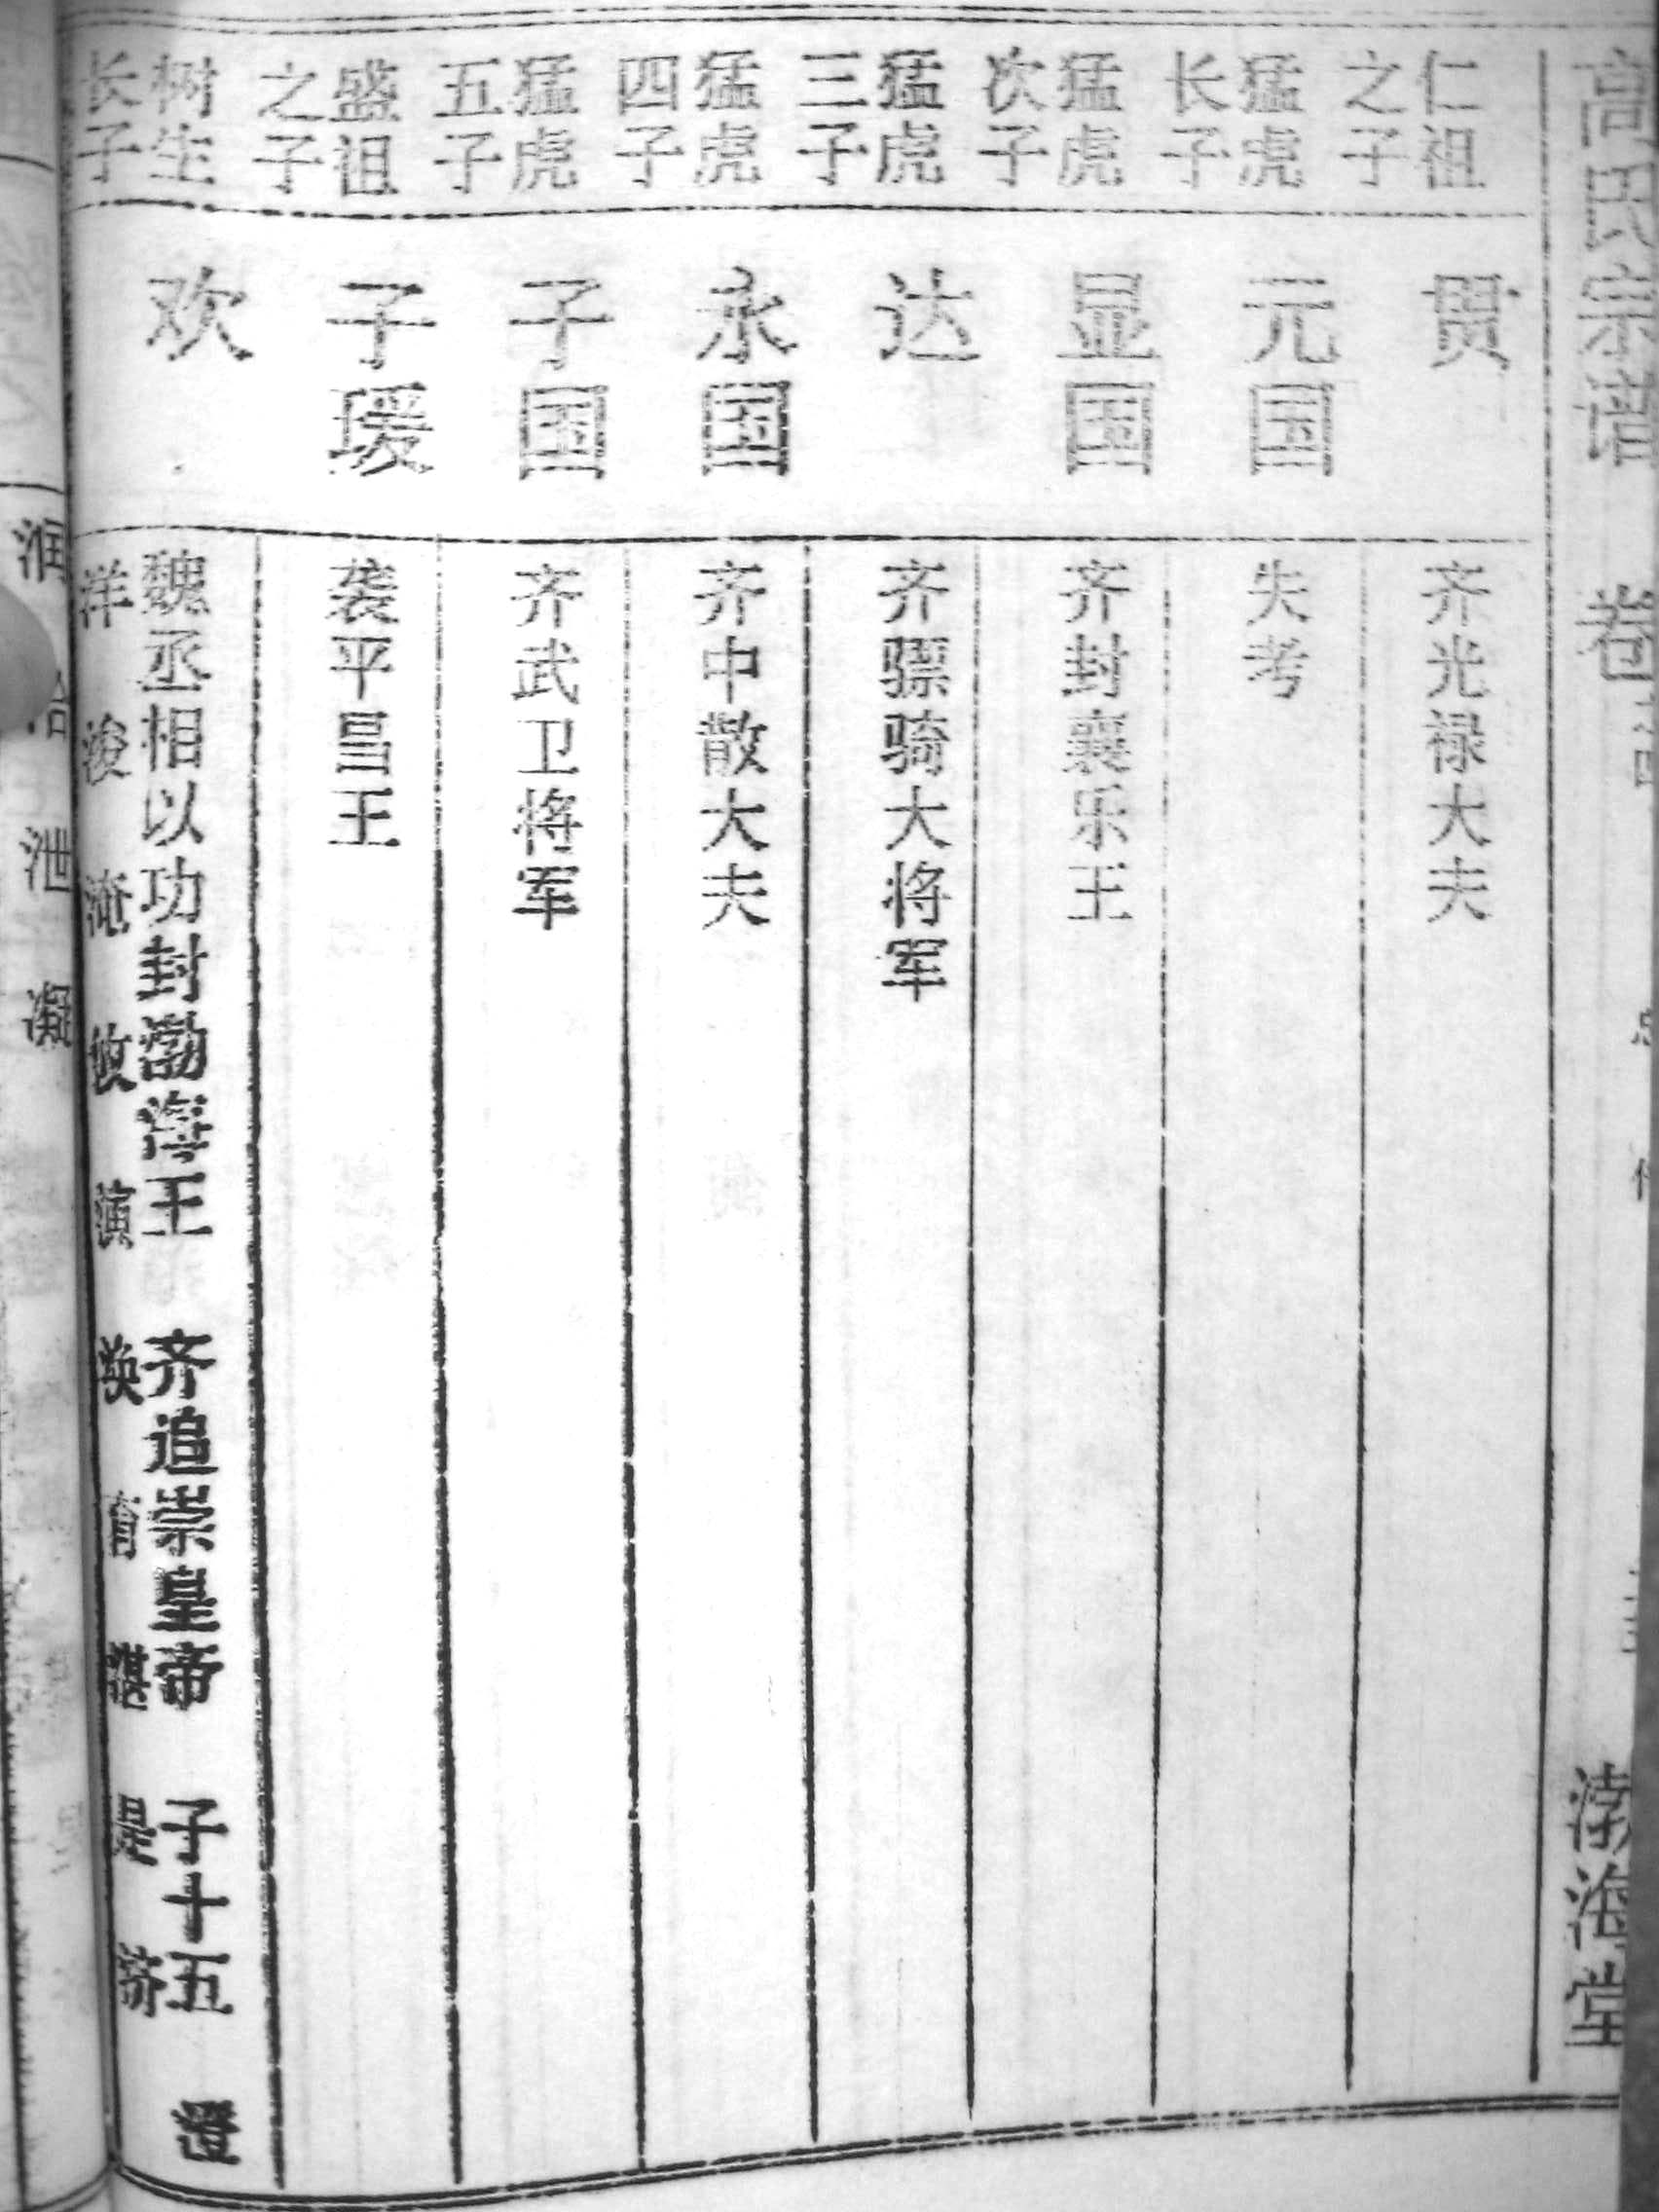 高氏宗谱
卷
渤海堂
仁祖
之子
贯
齐光禄大夫
猛虎
长子
元国
失考
猛虎
次子
显国
齐封襄乐王
猛虎
三子
达
齐骠骑大将军
猛虎
四子
永国
齐中散大夫
猛虎
五子
子国
齐武卫将军
盛祖
之子
子瑗
袭平昌王
树生
长子
欢
魏丞相以功封渤海王 齐追崇皇帝 子十五 澄
洋 浚 淹 浟 演 涣 淯 湛 湜 济
润 洽 泄 凝